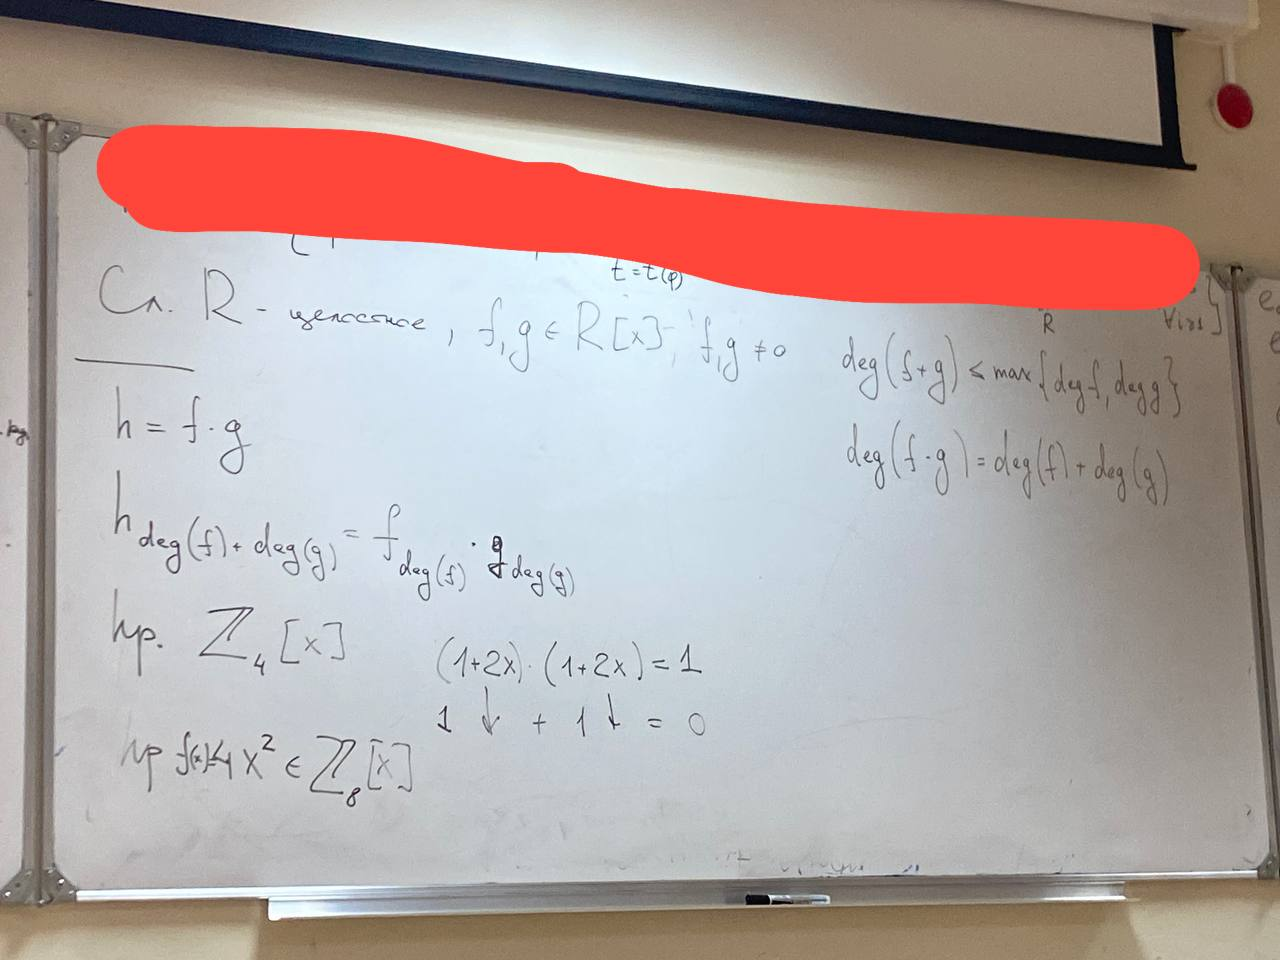 t = t(φ)
Сл. R - целостное, f, g ∈ R[x], f, g ≠ 0
R
deg(f+g) ≤ max{deg f, deg g}
h = f · g
deg(f·g) = deg(f) + deg(g)
h deg(f) + deg(g) = f deg(f) · g deg(g)
пр. ℤ₄[x] (1+2x)·(1+2x) = 1
1 ↓ + 1 ↓ = 0
пр f(x)=4x² ∈ ℤ₈[x]